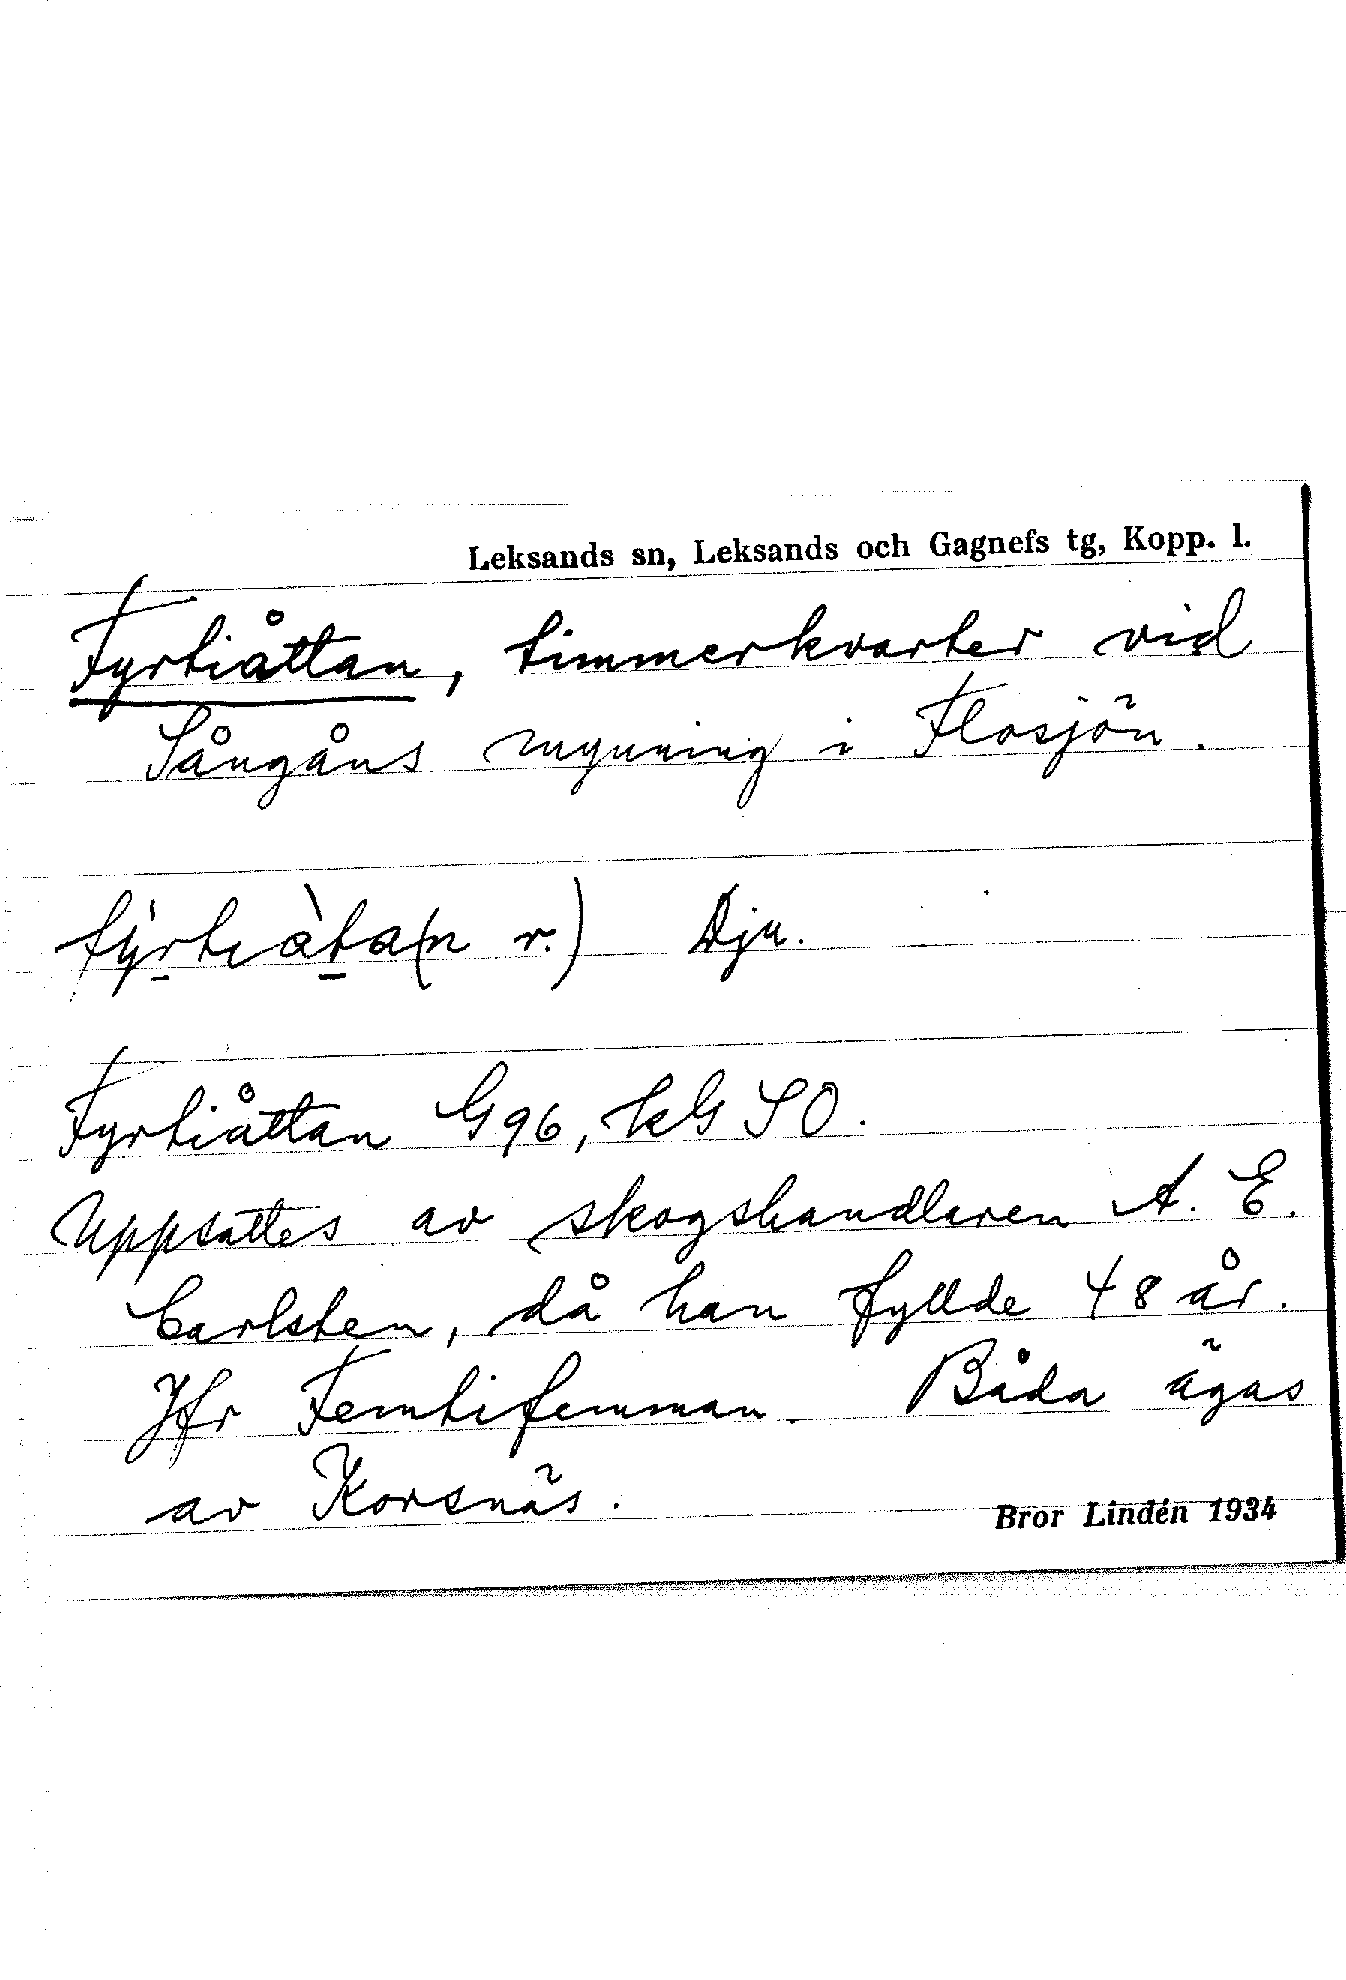 Leksands sn, Leksands och Gagnefs tg, Kopp. l.
Fyrtiåttan, timmerkvarter vid
Sångåns mynning i Flosjön.
fýrtiàta(n r.) Dju.
Fyrtiåttan G96, kG SO.
Uppsattes av skogshandlaren A. E.
Carlsten, då han fyllde 48 år.
Jfr Femtifemman. Båda ägas
av Korsnäs.
Bror Lindén 1934